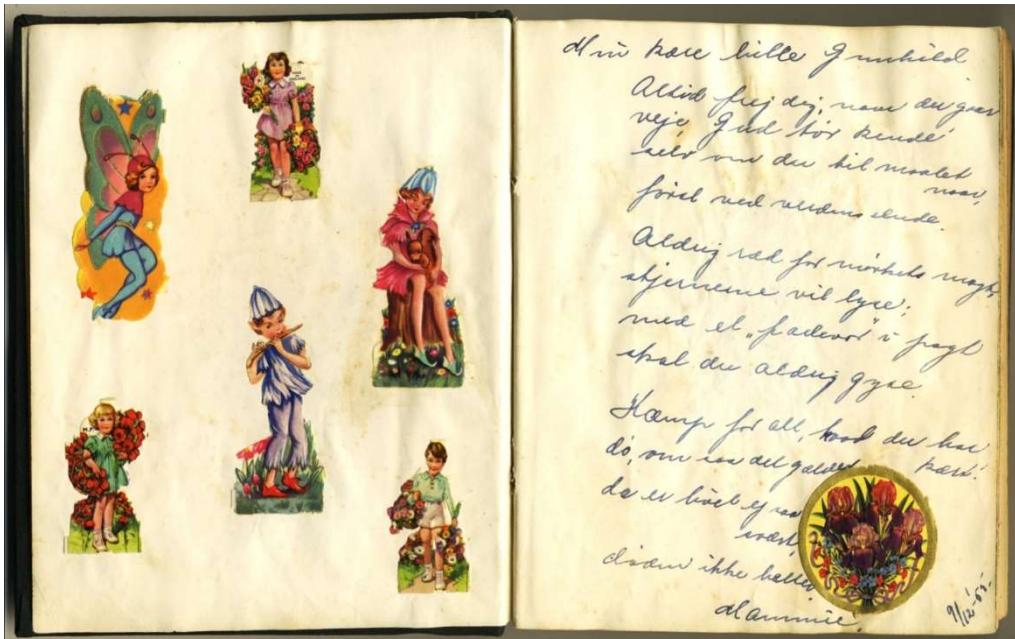 Min kære lille Gunhild
Altid frejdig, naar du gaar
veje Gud tør kende
selv om du til maalet
naar,
først ved verdens ende.
Aldrig ræd for mørkets magt,
stjernerne vil lyse;
med et "fadervor" i pagt
skal du aldrig gyse.
Kæmp for alt, hvad du har
kært.
dø, om saa det gælder
da er livet ej saa
svært,
døden ikke heller.
Mammie.
9/12-53.